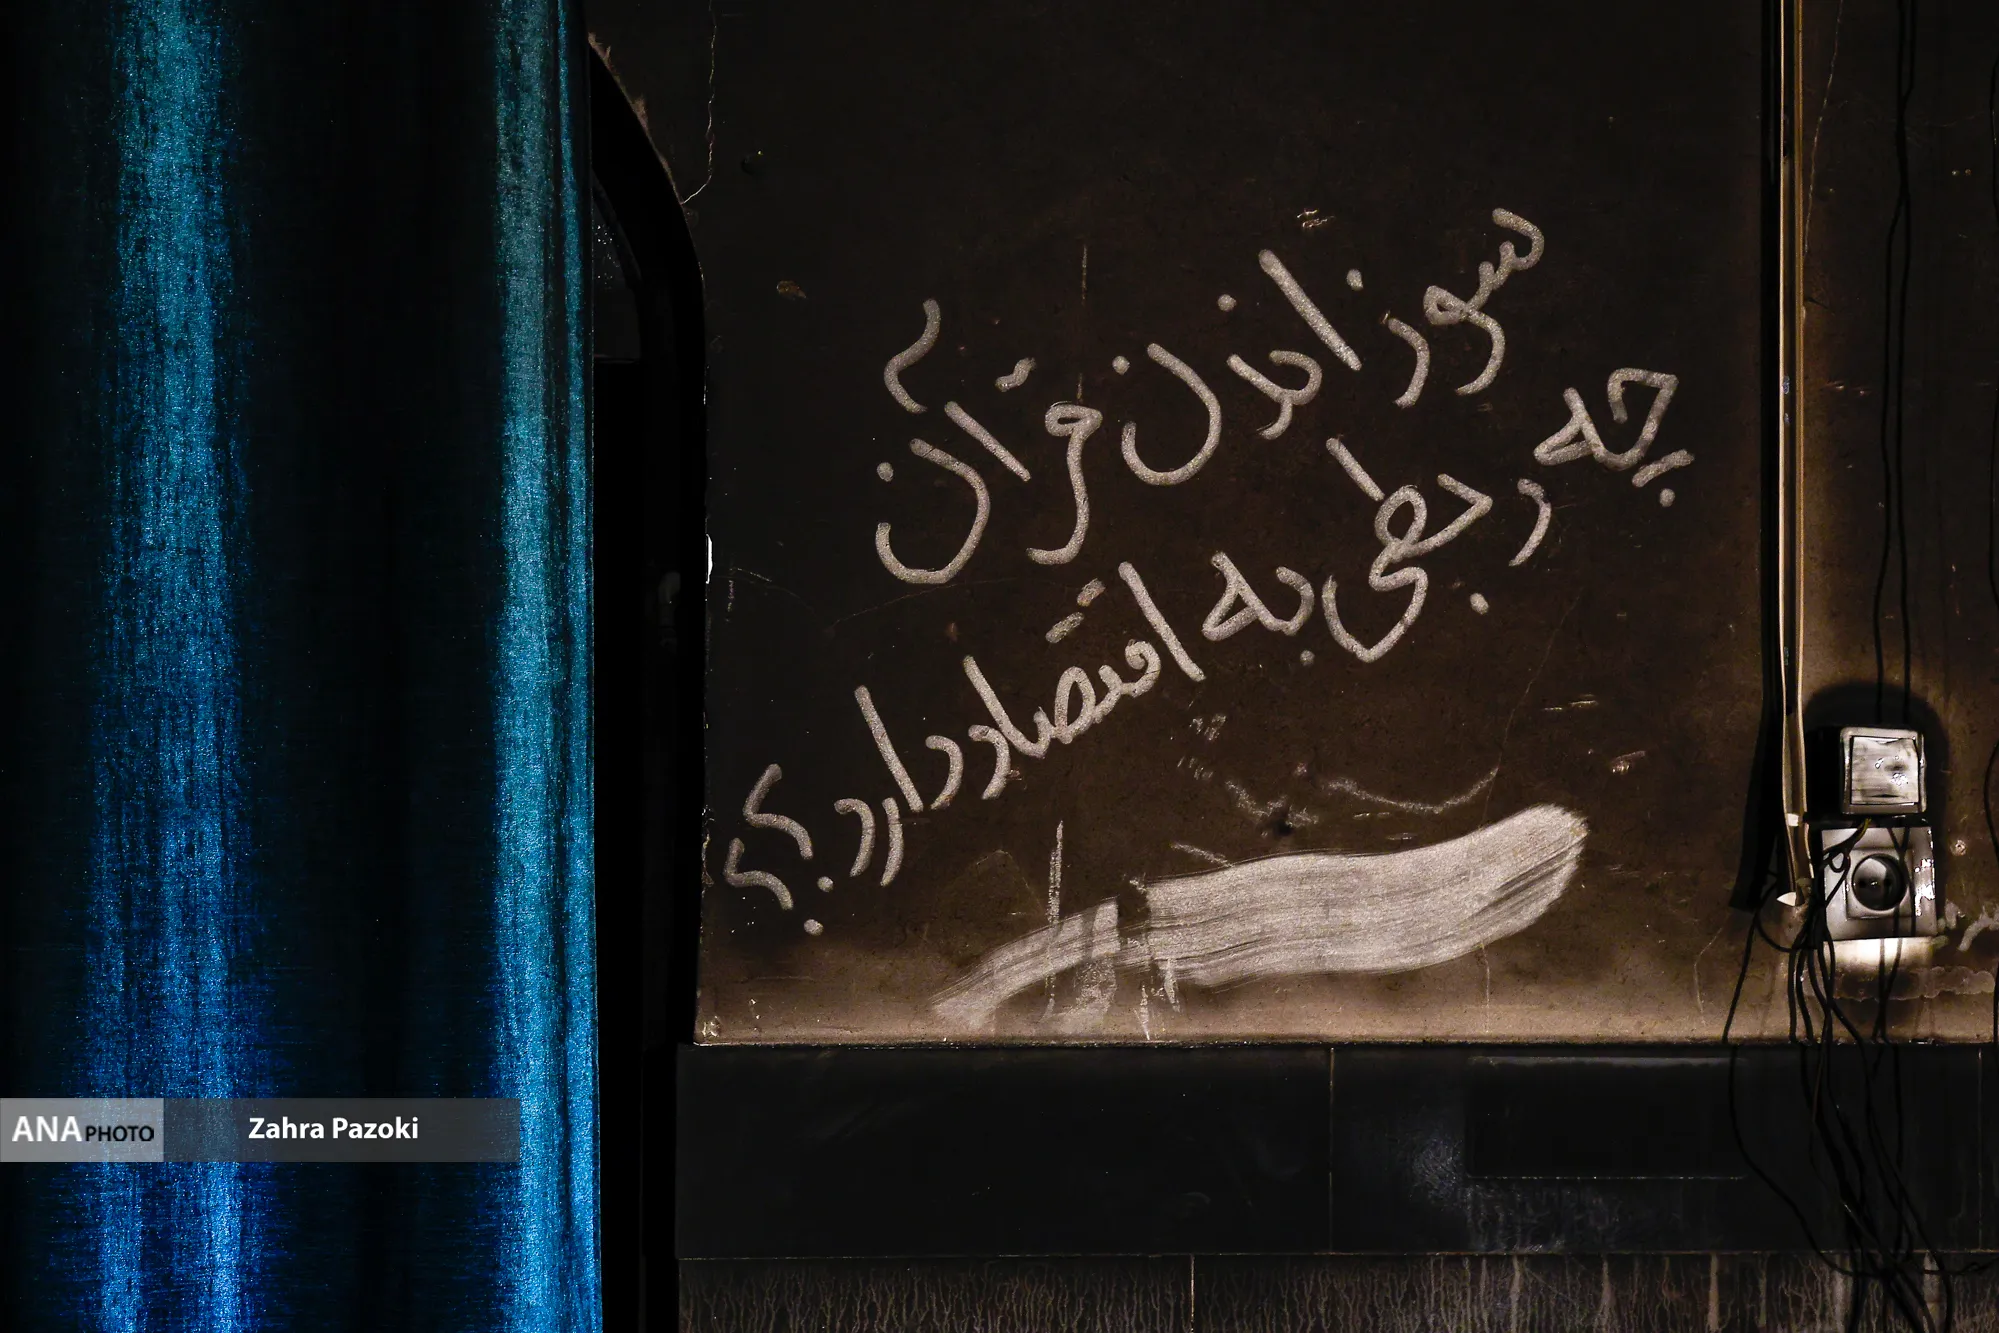 سوزاندن قرآن
چه ربطی به اقتصاد دارد ؟؟
ANA PHOTO
Zahra Pazoki